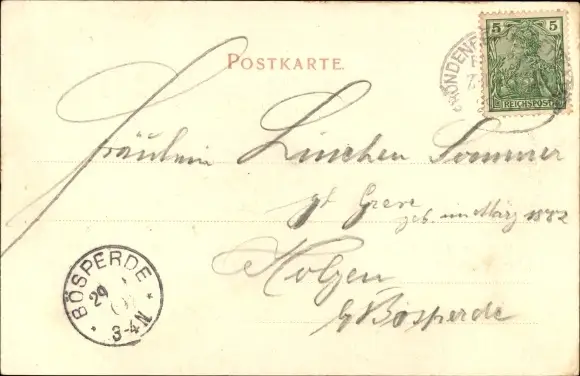 POSTKARTE.
5 5
REICHSPOST
Fräulein Linchen Sommer
geb. im März 1882
Holzen
b/Bösperde
BÖSPERDE
29
3-4N